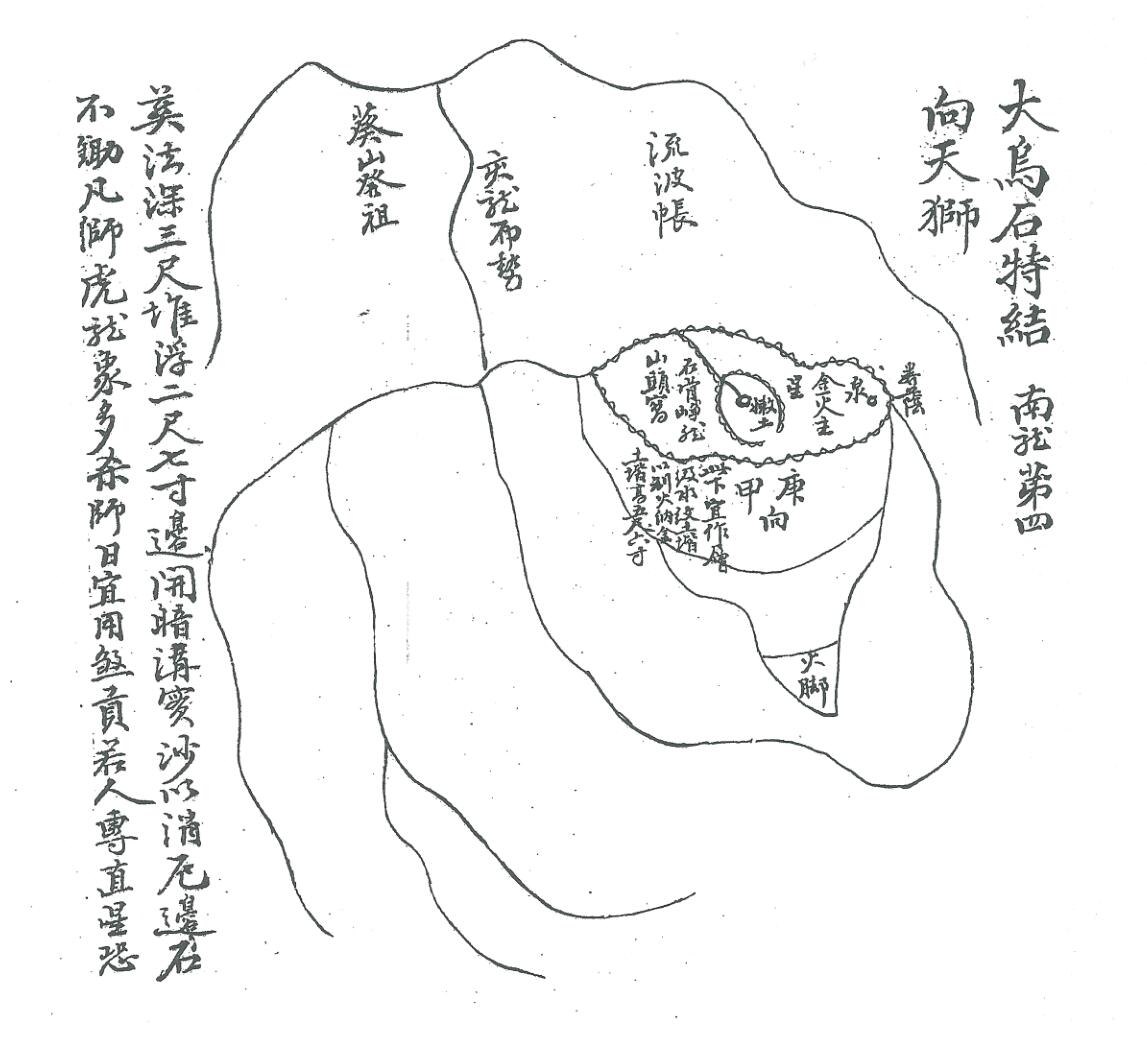 大烏石特結　南龍第四
向天獅
流波帳
亥龍布勢
葵山發祖
泉
金火主
星
撒土
石晴崢龍
山頭窩
庚
向
甲
此下宜作層
級水紋土墻
以制火納金
土墻高五尺六寸
火脚
葬法深三尺堆浮二尺七寸邊開暗溝實沙以消厄邊石
不鋤凡獅虎龍象多殺師曰宜用貢若人專直星恐